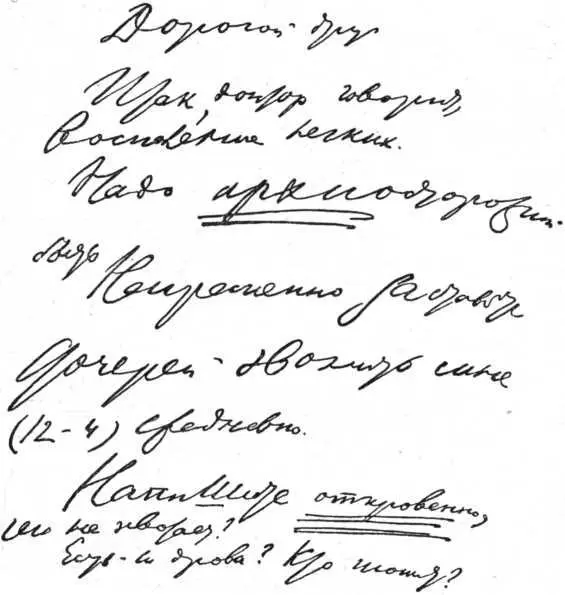 Дорогой друг
Итак, доктор говорит,
воспаление легких.
Надо архиосторожной
быть
Непременно заставьте
дочерей звонить мне
(12-4) ежедневно.
Напишите откровенно,
чего не хватает?
Есть ли дрова? Кто топит?